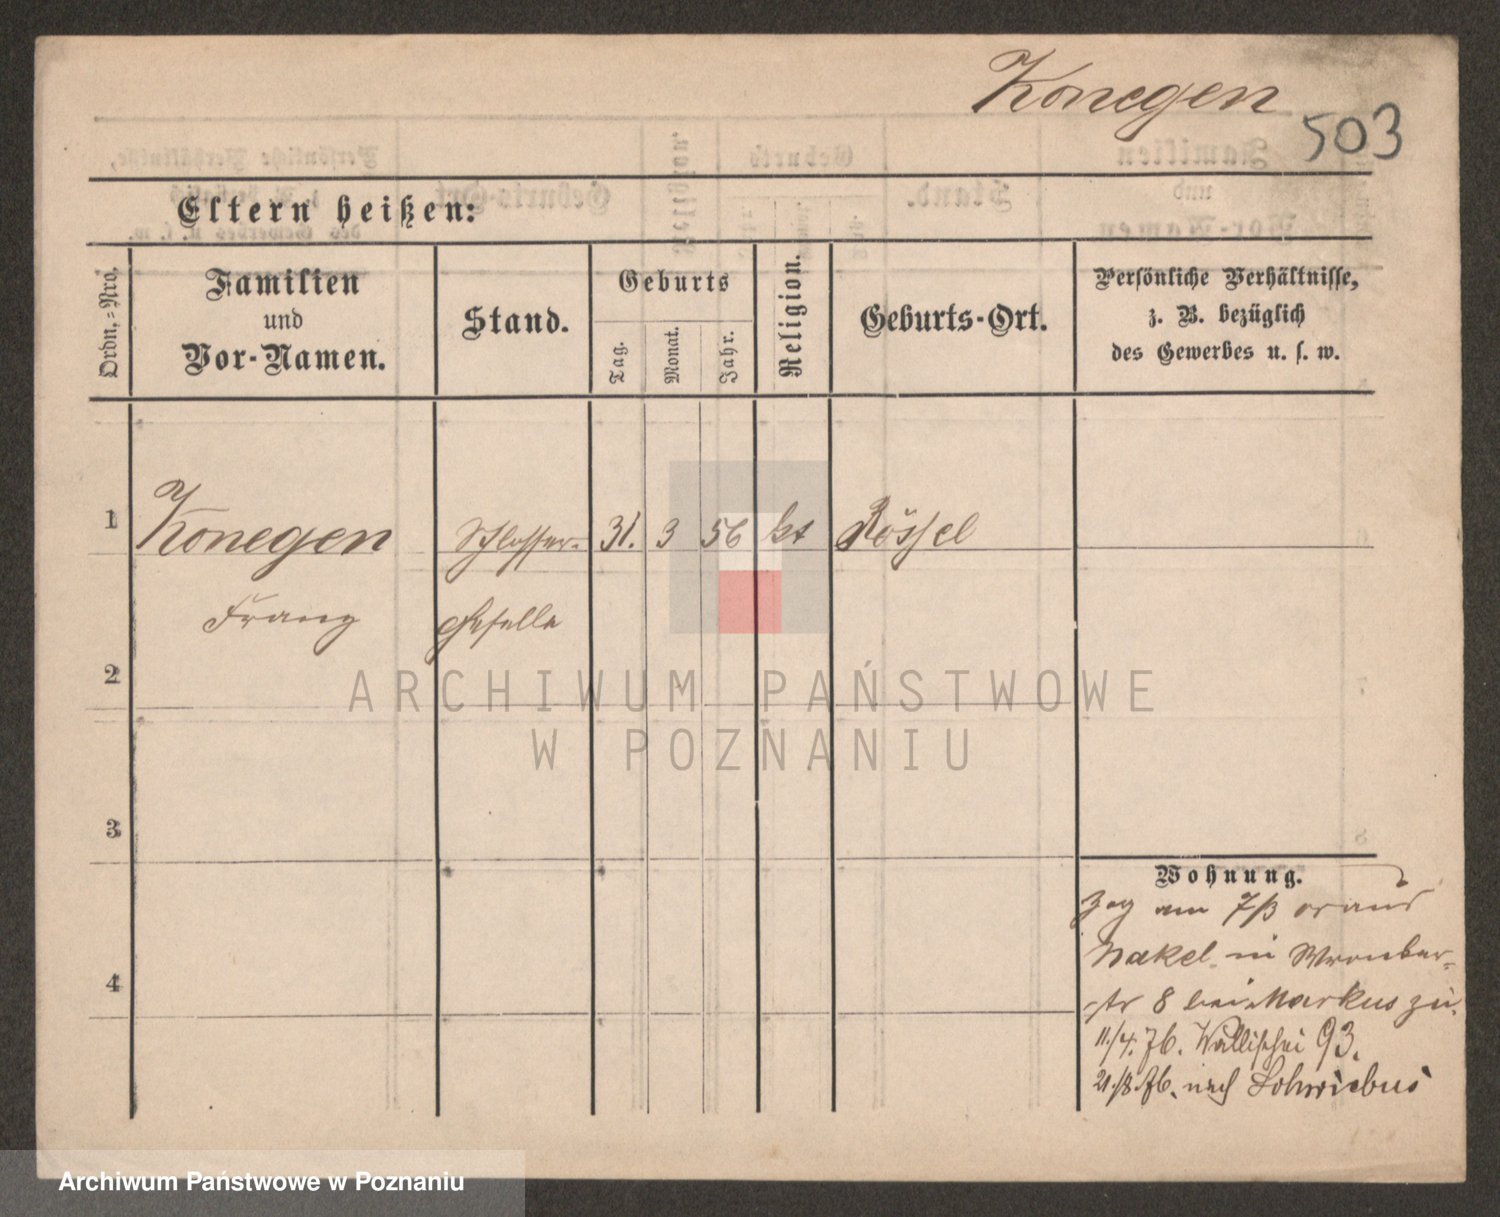 Konegen
503
Eltern heißen:
Ordn.-Nro.
Familien
und
Vor-Namen.
Stand.
Geburts
Tag.
Monat.
Jahr.
Religion.
Geburts-Ort.
Persönliche Verhältnisse,
z. B. bezüglich
des Gewerbes u. s. w.
1
Konegen
Schlosser-
31.
3
56
kt
Rössel
Franz
Geselle
2
ARCHIWUM PAŃSTWOWE
W POZNANIU
3
Wohnung.
Zog am 7/3
Nakel in Wronker-
str 8 bei Markus zu.
4
11./4. 76. Wallischei 93.
21./8. 76. nach
Archiwum Państwowe w Poznaniu